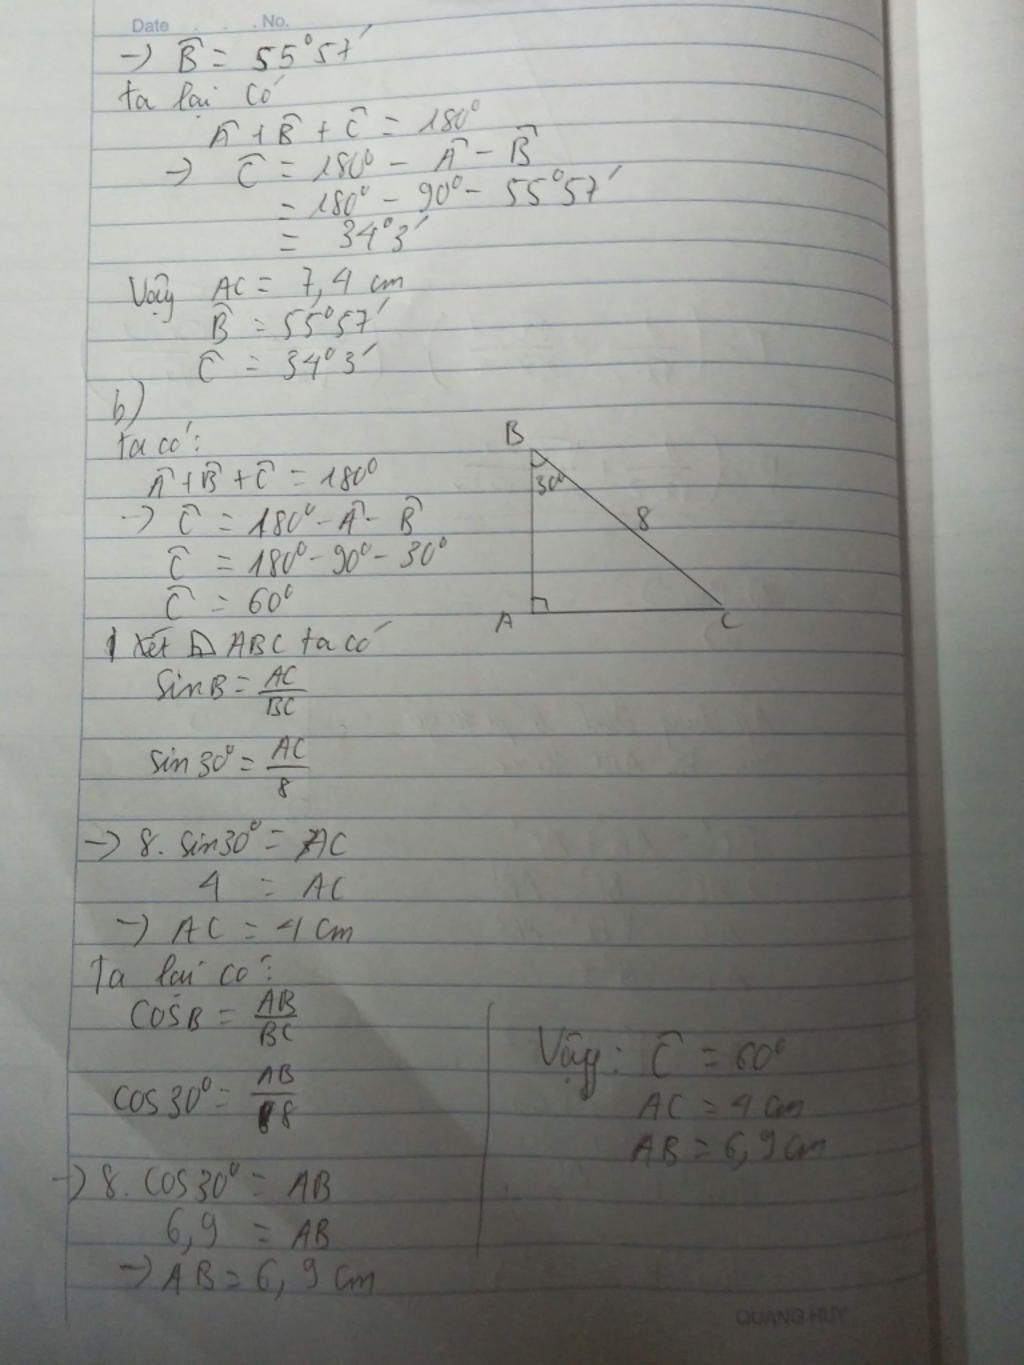 Date . . . No.
→ B̂ = 55°57'
ta lại có
Â + B̂ + Ĉ = 180°
→ Ĉ = 180° - Â - B̂
= 180° - 90° - 55°57'
= 34°3'
Vậy AC = 7,4 cm
B̂ = 55°57'
Ĉ = 34°3'
b)
ta có:
Â + B̂ + Ĉ = 180°
→ Ĉ = 180° - Â - B̂
Ĉ = 180° - 90° - 30°
Ĉ = 60°
B
30°
8
A
C
Xét ⊿ ABC ta có
sin B = AC/BC
sin 30° = AC/8
→ 8. sin 30° = AC
4 = AC
→ AC = 4 cm
Ta lại có:
cos B = AB/BC
cos 30° = AB/8
→ 8. cos 30° = AB
6,9 = AB
→ AB = 6,9 cm
Vậy: Ĉ = 60°
AC = 4 cm
AB = 6,9 cm
QUANG HUY